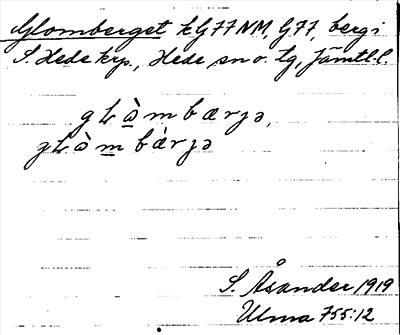 Glomberget kG77NM, G77, berg i
S. Hede krp., Hede sn o. tg, Jämtl. l.
gʟò̱mbærjə,
gʟòm̱bæ̀rjə
S. Åsander 1919
Ulma 755:12